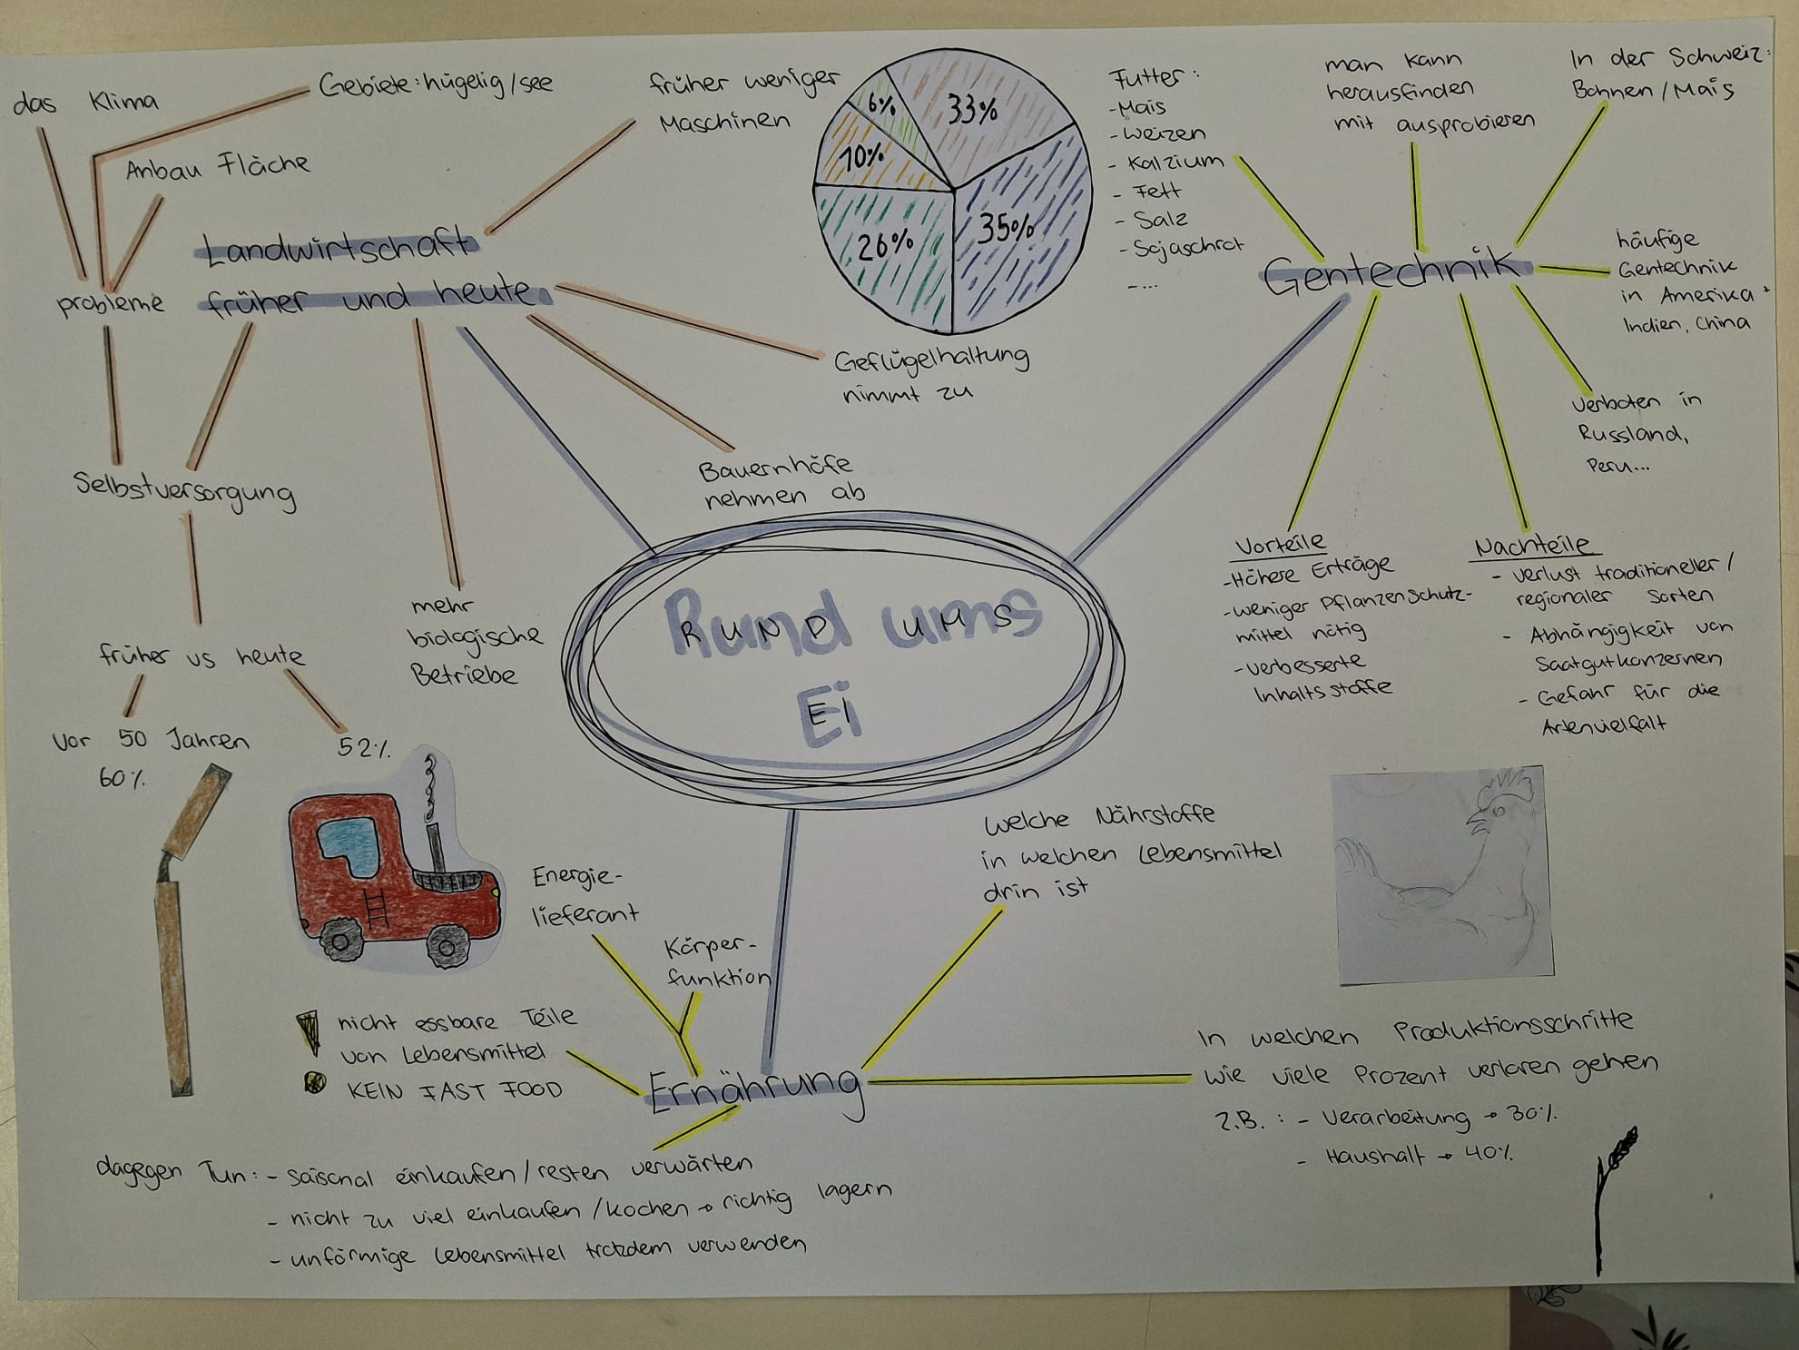 das Klima
Gebiete: hügelig/see
Anbau Fläche
früher weniger
Maschinen
Landwirtschaft
früher und heute
probleme
Selbstversorgung
früher vs heute
Vor 50 Jahren
60%
52%
mehr
biologische
Betriebe
Bauernhöfe
nehmen ab
Geflügelhaltung
nimmt zu
6%
33%
10%
35%
26%
Futter:
-Mais
-Weizen
- Kalzium
- Fett
- Salz
-Sojaschrot
-...
man kann
herausfinden
mit ausprobieren
In der Schweiz:
Bohnen/Mais
Gentechnik
häufige
Gentechnik
in Amerika,
Indien, China
verboten in
Russland,
Peru...
Vorteile
-Höhere Erträge
-weniger Pflanzenschutz-
mittel nötig
-verbesserte
Inhaltsstoffe
Nachteile
- verlust traditioneller/
regionaler Sorten
- Abhängigkeit von
Saatgutkonzernen
- Gefahr für die
Artenvielfalt
Rund ums
RUND UMS
Ei
EI
Energie-
lieferant
Körper-
funktion
welche Nährstoffe
in welchen Lebensmittel
drin ist
nicht essbare Teile
von Lebensmittel
KEIN FAST FOOD
Ernährung
In welchen Produktionsschritte
wie viele Prozent verloren gehen
Z.B.: - Verarbeitung → 30%
- Haushalt → 40%
dagegen Tun: - saisonal einkaufen/resten verwärten
- nicht zu viel einkaufen/kochen → richtig lagern
- unförmige Lebensmittel trotzdem verwenden